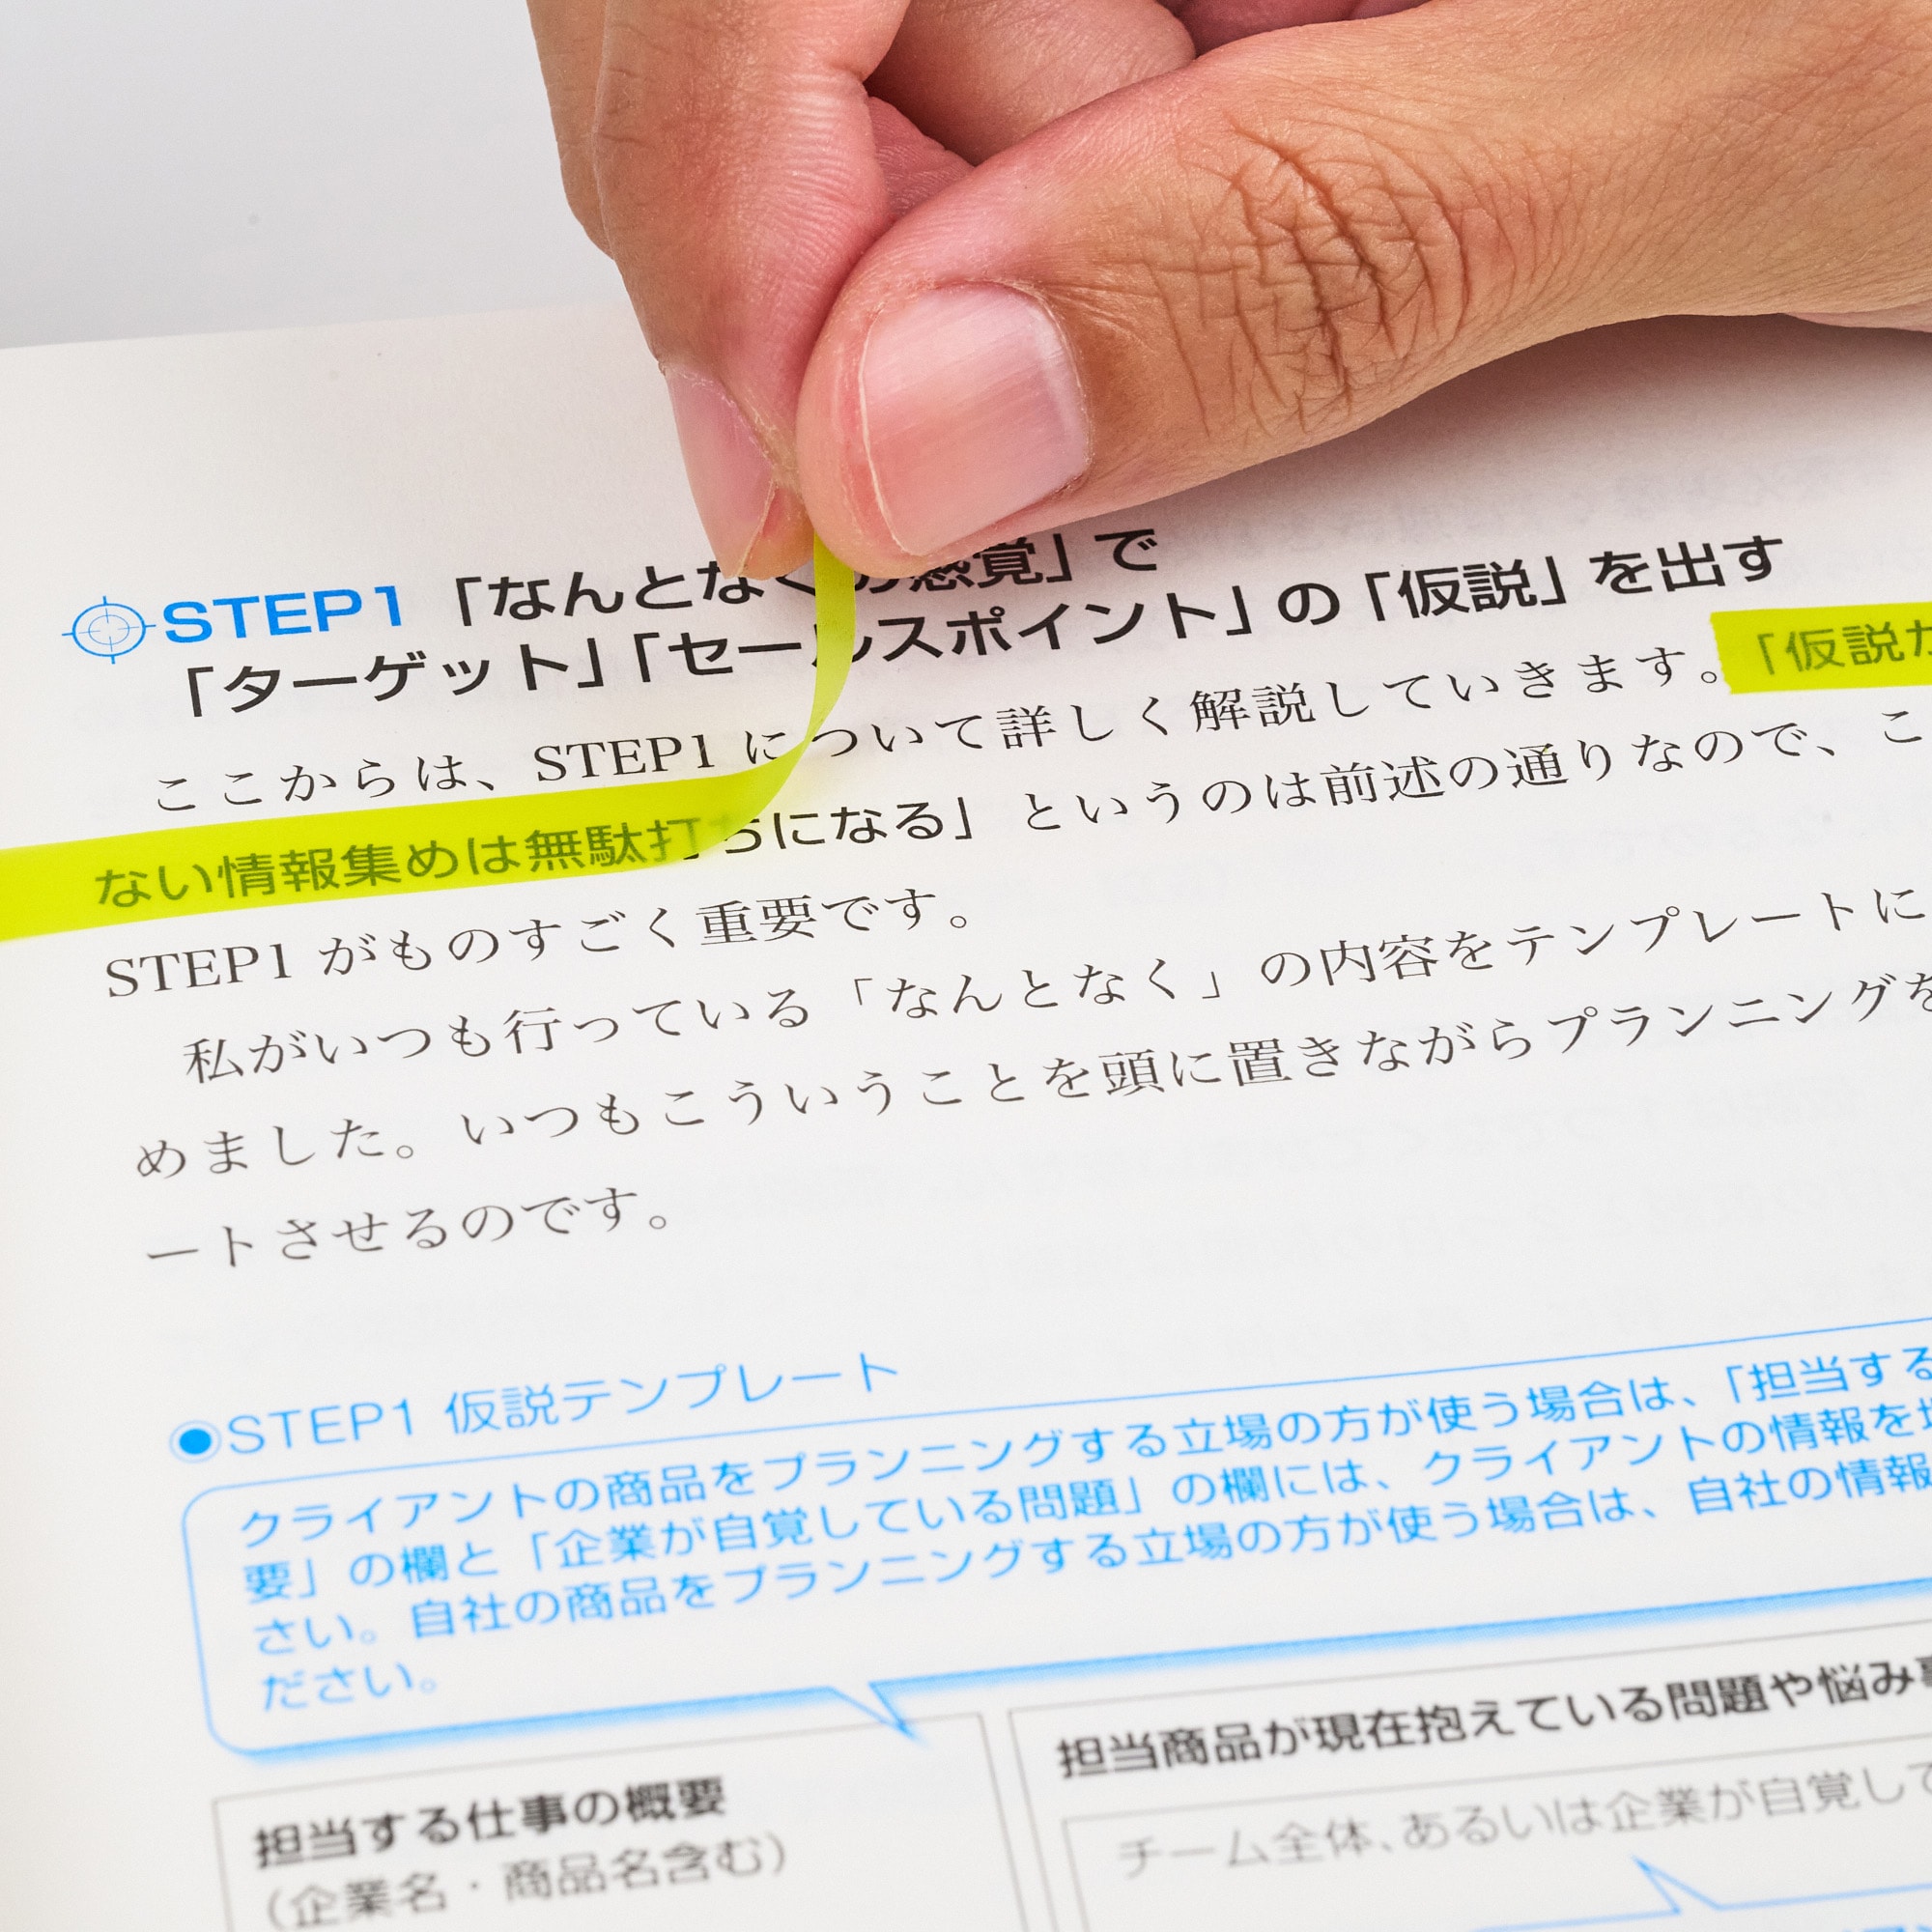 STEP1「なんとなくの感覚」で
「ターゲット」「セールスポイント」の「仮説」を出す
ここからは、STEP1 について詳しく解説していきます。「仮説が
ない情報集めは無駄打ちになる」というのは前述の通りなので、こ
STEP1 がものすごく重要です。
私がいつも行っている「なんとなく」の内容をテンプレートに
めました。いつもこういうことを頭に置きながらプランニングを
ートさせるのです。
STEP1 仮説テンプレート
クライアントの商品をプランニングする立場の方が使う場合は、「担当する
要」の欄と「企業が自覚している問題」の欄には、クライアントの情報を
さい。自社の商品をプランニングする立場の方が使う場合は、自社の情報
ださい。
担当する仕事の概要
(企業名・商品名含む)
担当商品が現在抱えている問題や悩み事
チーム全体、あるいは企業が自覚して